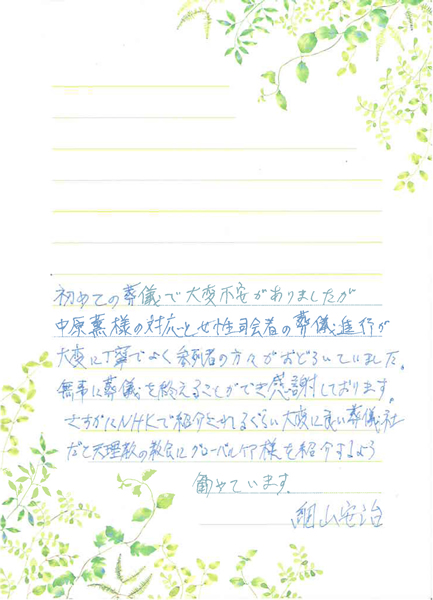 初めての葬儀で大変不安がありましたが
中原薫様の対応と女性司会者の葬儀進行が
大変に丁寧でよく参列者の方々がおどろいていました。
無事に葬儀を終えることができ感謝しております。
さすがにNHKで紹介されるぐらい大変に良い葬儀社
だと天理教の教会にグローバルケア様を紹介するよう
勧めています。
山宏治